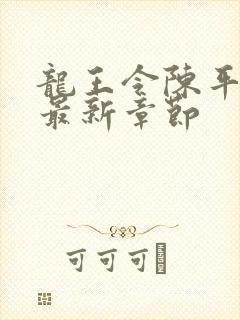 龍王令陳平
最新章節
可可可